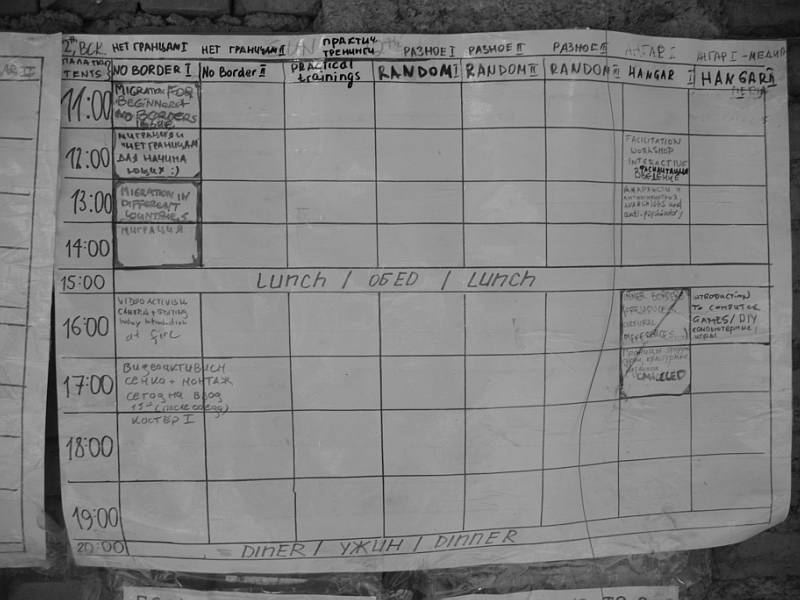 2th, ВСК
НЕТ ГРАНИЦАМ I
НЕТ ГРАНИЦАМ II
ПРАКТИЧ.
ТРЕНИНГИ
РАЗНОЕ I
РАЗНОЕ II
РАЗНОЕ III
АНГАР I
АНГАР II - МЕДИА
ПАЛАТКИ
TENTS
NO BORDER I
No Border II
practical
trainings
RANDOM I
RANDOM II
RANDOM III
HANGAR I
HANGAR II
11:00
MIGRATION FOR
BEGINNERS
NO BORDERS
12:00
МИГРАЦИЯ И
НЕТ ГРАНИЦАМ
ДЛЯ НАЧИНА
ЮЩИХ :)
FACILITATION
WORKSHOP
INTERACTIVE
ФАСИЛИТАЦИЯ
ВВЕДЕНИЕ
13:00
MIGRATION IN
DIFFERENT
COUNTRIES
anti-psychiatry
14:00
МИГРАЦИЯ
15:00
Lunch / ОБЕД / Lunch
16:00
VIDEO ACTIVISM
CAMERA + EDITING
today introduction
at fire I
INNER BORDERS
CULTURAL
DIFFERENCES
INTRODUCTION
TO COMPUTER
GAMES / DIY
КОМПЬЮТЕРНЫЕ
ИГРЫ
17:00
ВИДЕОАКТИВИЗМ
СЪЕМКА + МОНТАЖ
СЕГОДНЯ ВВОД
15:00 (после обеда)
КОСТЕР I
CANCELED
18:00
19:00
20:00
DINER / УЖИН / DINNER